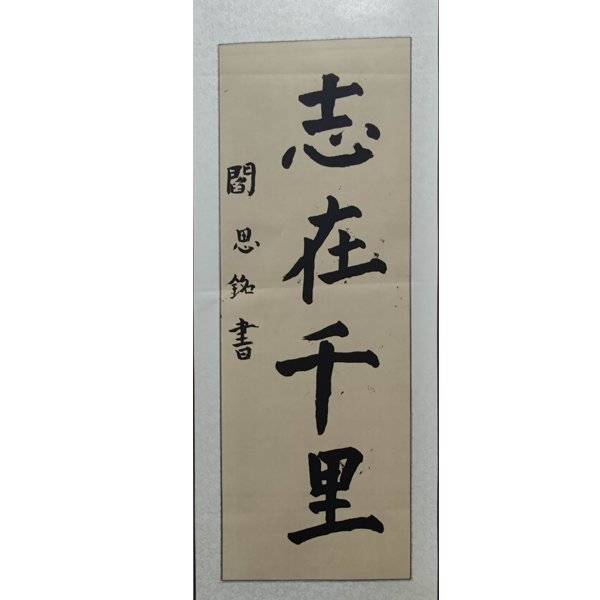 志在千里
閻思銘書